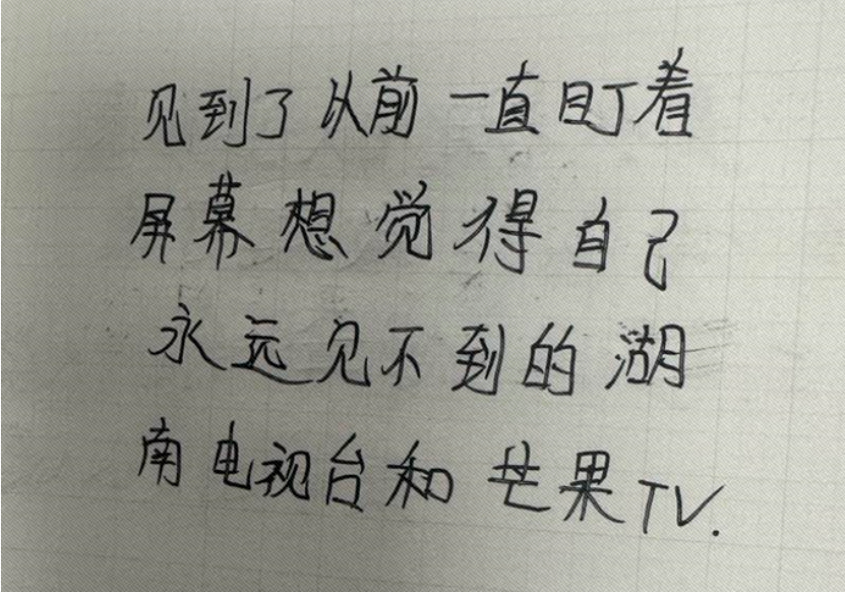 见到了从前一直盯着
屏幕想觉得自己
永远见不到的湖
南电视台和芒果TV.